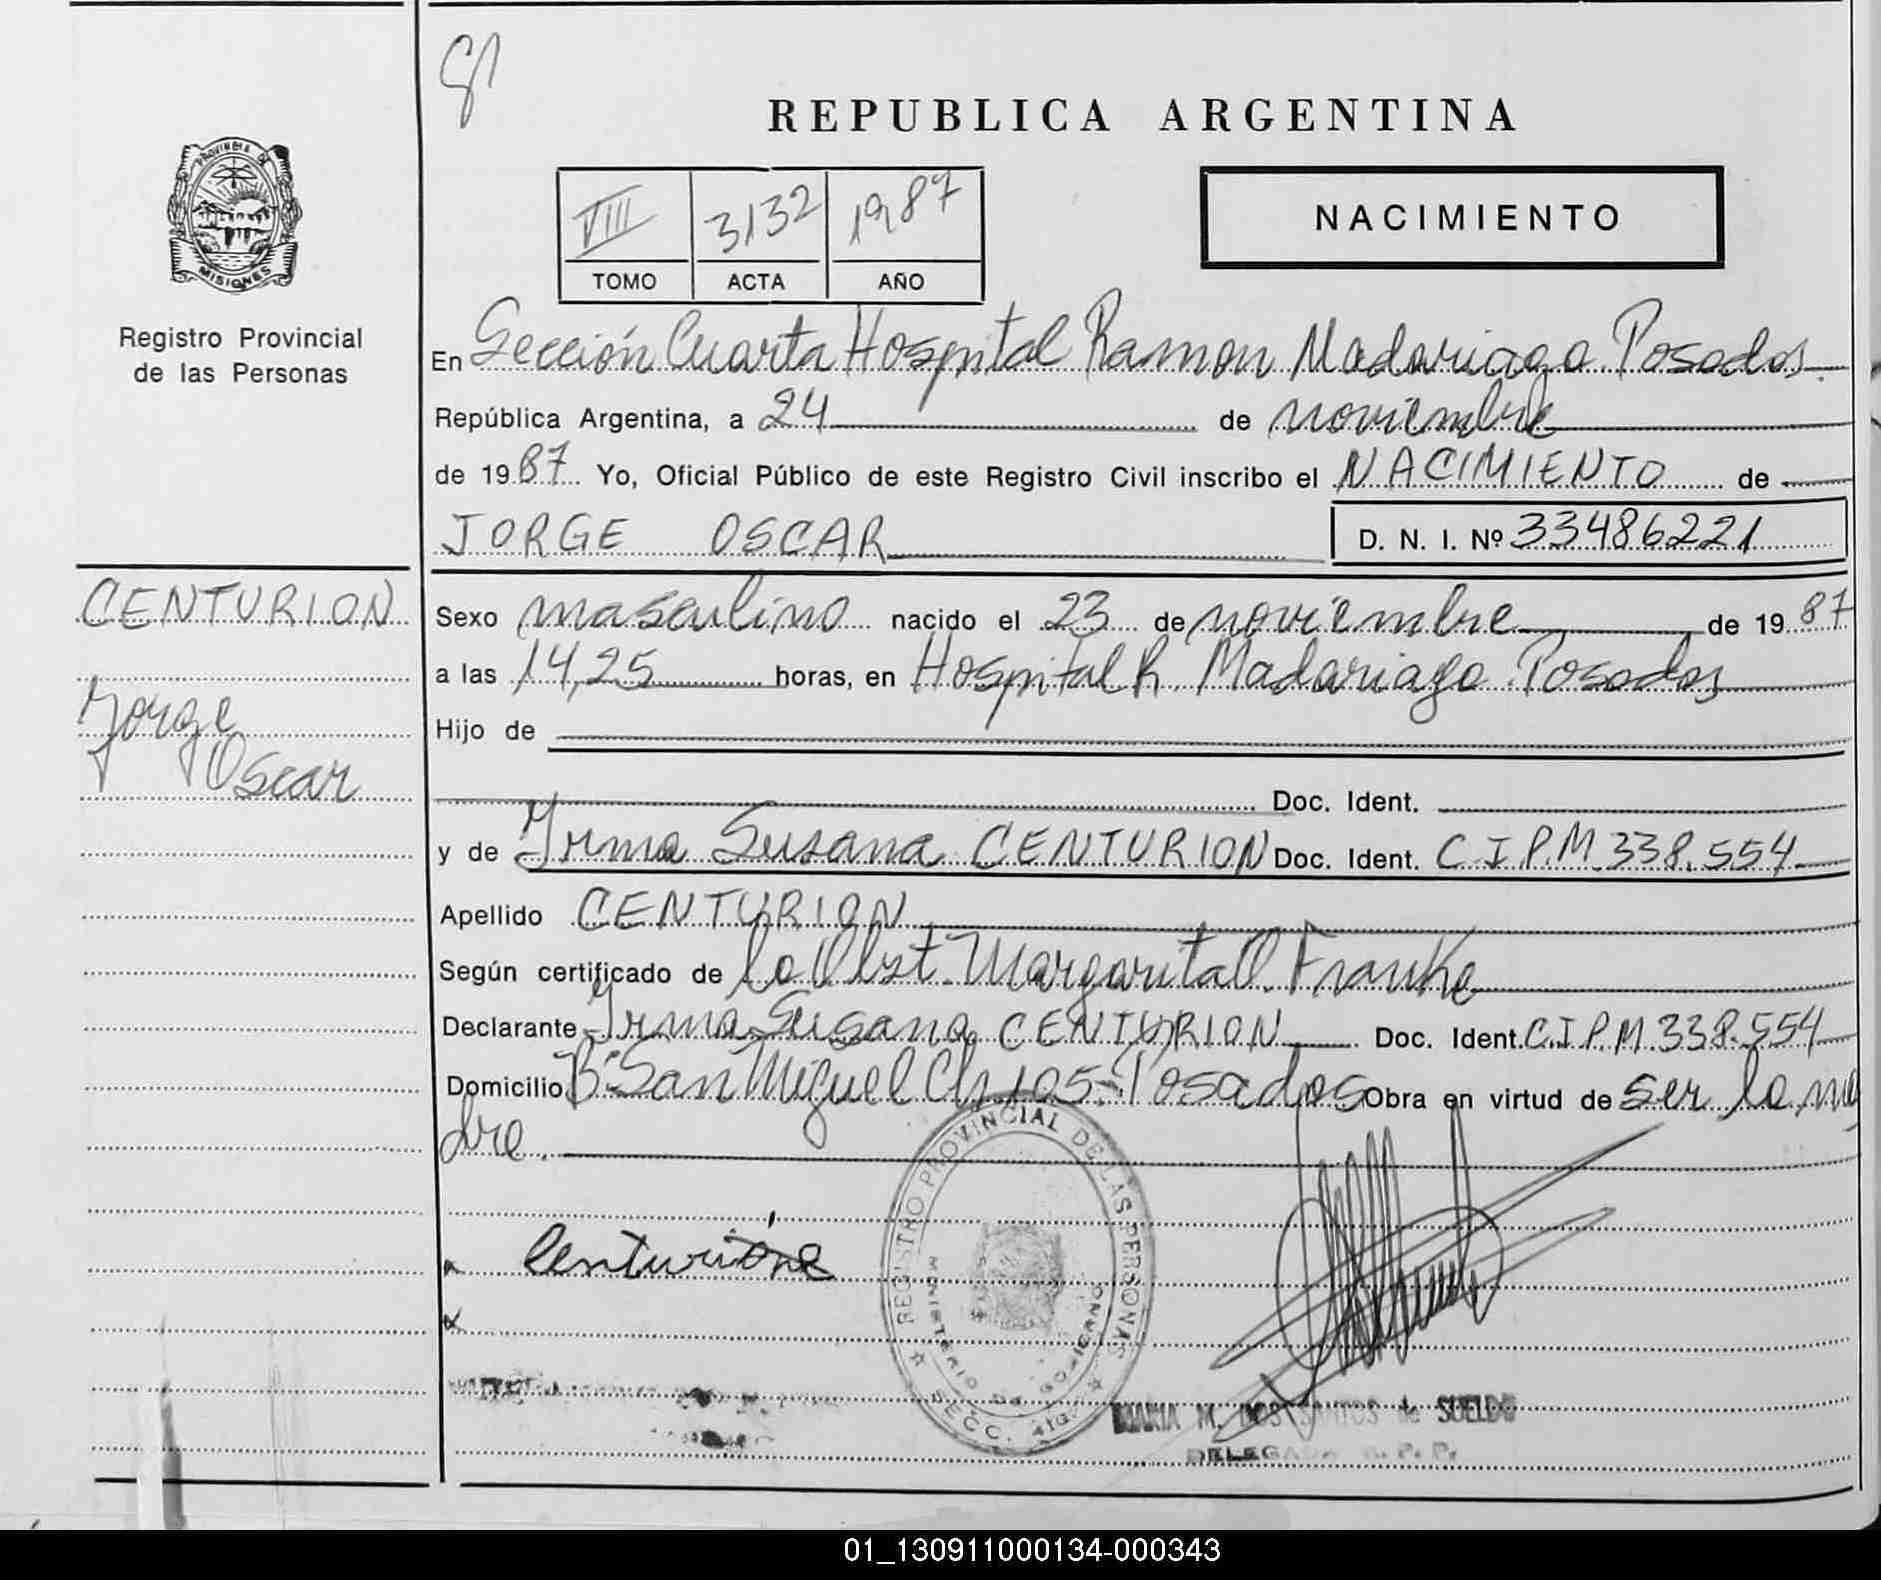 PROVINCIA DE
MISIONES
Registro Provincial
de las Personas
CENTURION
Jorge
Oscar
REPUBLICA ARGENTINA
VIII 3132 1987
TOMO ACTA AÑO
NACIMIENTO
En Sección Cuarta Hospital Ramon Madariaga Posadas
República Argentina, a 24 de noviembre
de 1987 Yo, Oficial Público de este Registro Civil inscribo el NACIMIENTO de
JORGE OSCAR D. N. I. Nº 33486221
Sexo masculino nacido el 23 de noviembre de 1987
a las 14,25 horas, en Hospital R Madariaga Posadas
Hijo de
Doc. Ident.
y de Irma Susana CENTURION Doc. Ident. C.I.P.M 338.554
Apellido CENTURION
Según certificado de la Obst. Margarita O. Franke
Declarante Irma Susana CENTURION Doc. Ident. C.I.P.M. 338.554
Domicilio Bº San Miguel Ch 105-Posadas Obra en virtud de ser la ma
dre.
Centurione
REGISTRO PROVINCIAL DE LAS PERSONAS
MINISTERIO DE GOBIERNO
SECC. 4ta.
MARIA M. DOS SANTOS de SUELDO
DELEGADA R. P. P.
01_130911000134-000343